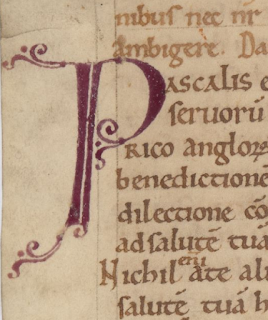 nibus nec nr̄
ambigere. Da
PASCALIS e
seruorū
RICO angloꝝ
benedictione
dilectione cō
ad salutē tuā
Nichil eni ate ali
salutē tuā h